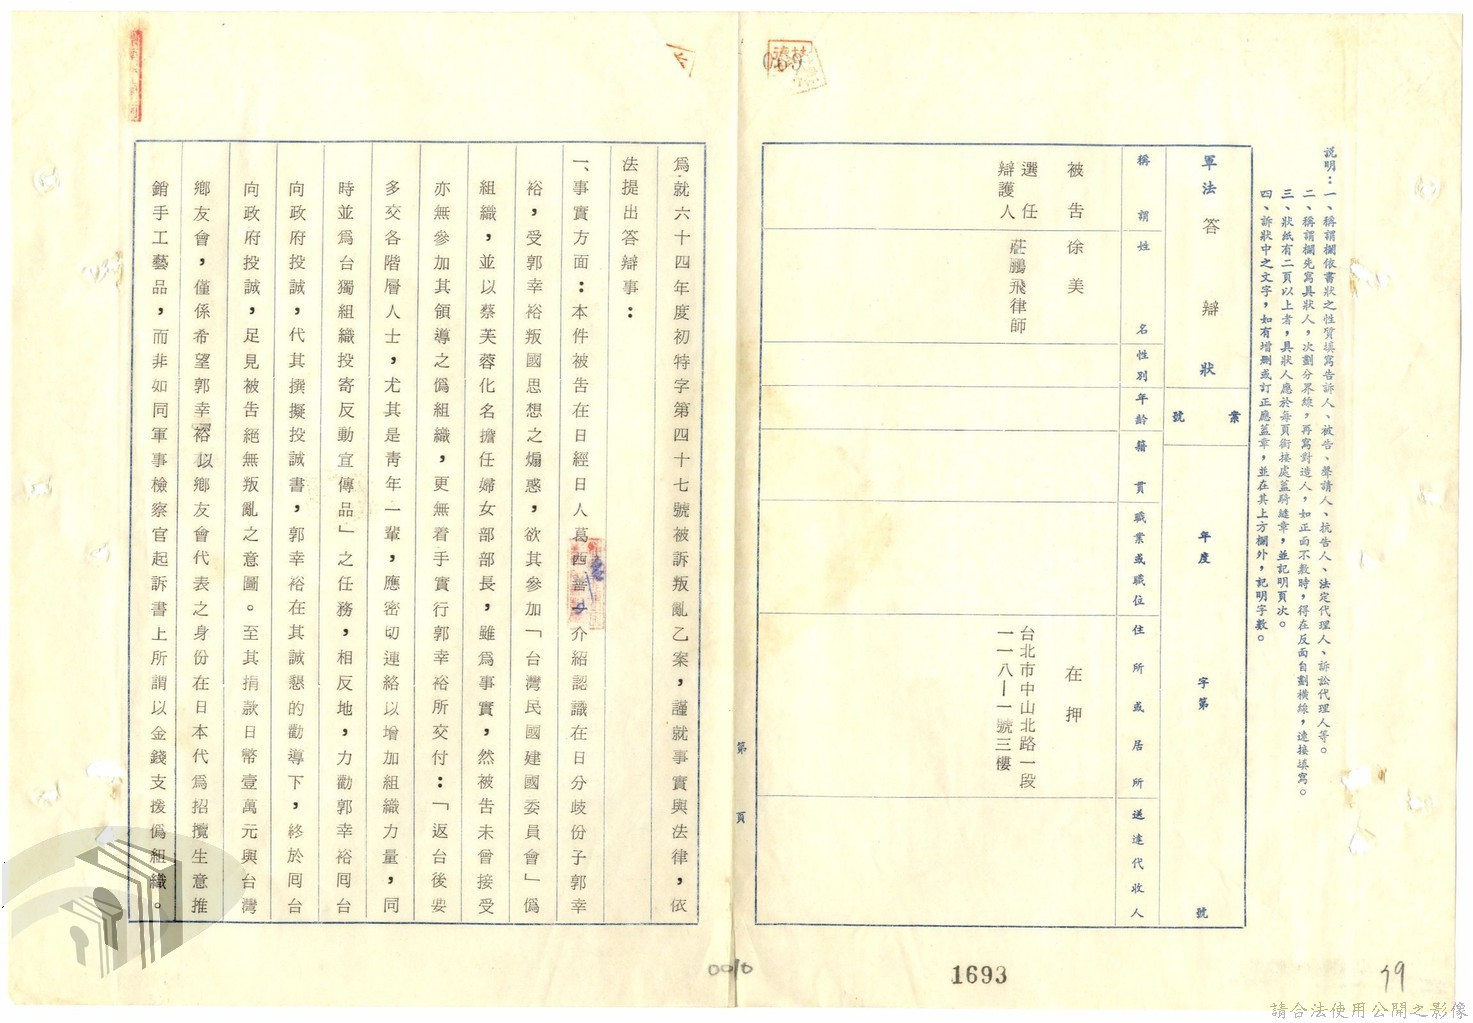 說明：一、稱謂欄依書狀之性質填寫告訴人、被告、聲請人、抗告人、法定代理人、訴訟代理人等。
二、稱謂欄先寫具狀人，次劃分界線，再寫對造人，如正面不敷時，得在反面自劃橫線，連接填寫。
三、狀紙有二頁以上者，具狀人應於每頁銜接處蓋騎縫章，並記明頁次。
四、訴狀中之文字，如有增刪或訂正應蓋章，並在其上方欄外，記明字數。
軍法答辯狀
案號
年度 字第 號
稱謂
姓名
性別
年齡
籍貫
職業或職位
住所或居所
送達代收人
被告 徐美 在押
選任辯護人 莊鵬飛律師 台北市中山北路一段一一八—一號三樓
第 頁
為就六十四年度初特字第四十七號被訴叛亂乙案，謹就事實與法律，依
法提出答辯事：
一、事實方面：本件被告在日經日人葛西善子介紹認識在日分歧份子郭幸
裕，受郭幸裕叛國思想之煽惑，欲其參加「台灣民國建國委員會」偽
組織，並以蔡芙蓉化名擔任婦女部部長，雖為事實，然被告未曾接受
亦無參加其領導之偽組織，更無着手實行郭幸裕所交付：「返台後要
多交各階層人士，尤其是青年一輩，應密切連絡以增加組織力量，同
時並為台獨組織投寄反動宣傳品」之任務，相反地，力勸郭幸裕囘台
向政府投誠，代其撰擬投誠書，郭幸裕在其誠懇的勸導下，終於囘台
向政府投誠，足見被告絕無叛亂之意圖。至其捐款日幣壹萬元與台灣
鄉友會，僅係希望郭幸裕以鄉友會代表之身份在日本代為招攬生意推
銷手工藝品，而非如同軍事檢察官起訴書上所謂以金錢支援偽組織。
0010
1693
59
請合法使用公開之影像